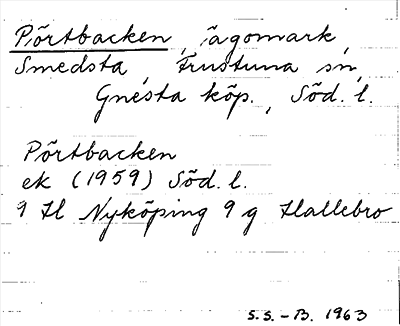 Pörtbacken, ägomark,
Smedsta, Frustuna sn,
Gnesta köp., Söd. l.
Pörtbacken
ek (1959) Söd. l.
9 H Nyköping 9 g Hallebro
S.S.-B. 1963